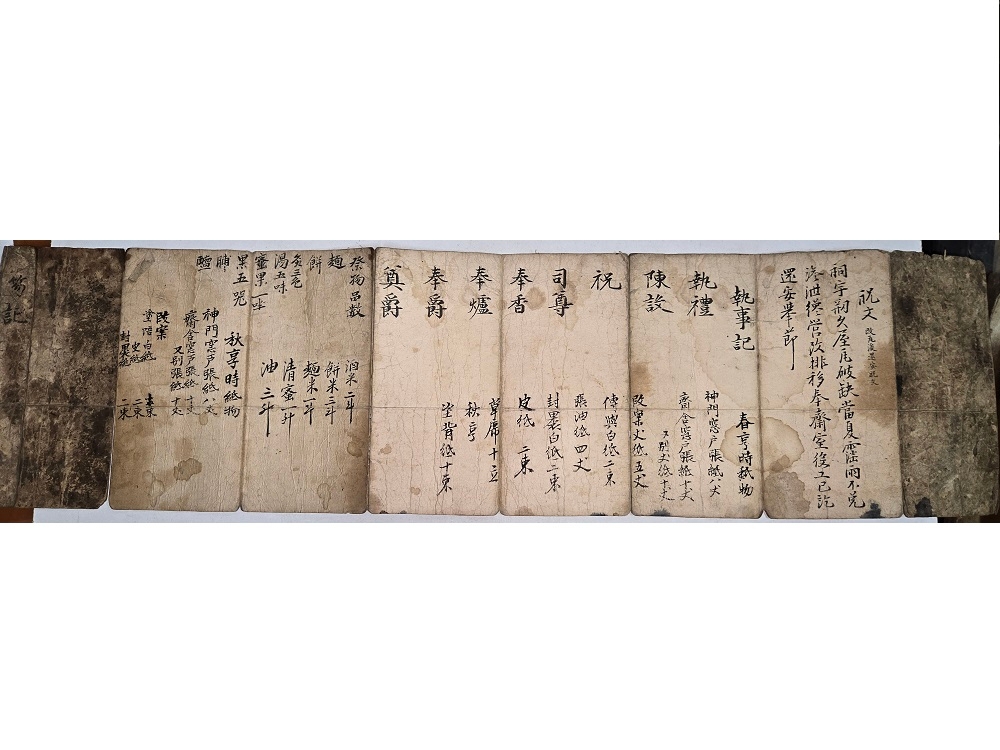 祝文
改瓦後還安祝文
祠宇剏久屋瓦破缺當夏霖雨不免
滲泄擾營改排移奉齋室役工已訖
還安擧節
執事記
執禮
陳設
祝
司尊
奉香
奉爐
奉爵
奠爵
春享時紙物
神門窓戶張紙八丈
齋舍窓戶張紙十丈
又別丈紙十丈
改案丈紙五丈
傳與白紙二束
張油紙四丈
封裹白紙二束
皮紙 二束
草席十立
秋享
塗背紙十束
祭物品數
麵
餅
炙三色
湯五味
蜜果一坐
果五器
脯
醯
酒米二斗
餅米三斗
麵米一斗
清蜜二升
油三斗
秋享時紙物
神門窓戶張紙八丈
齋舍窓戶張紙十丈
又別張紙十丈
改案
塗褙白紙 十束
史紙 二束
封裹紙 二束
記